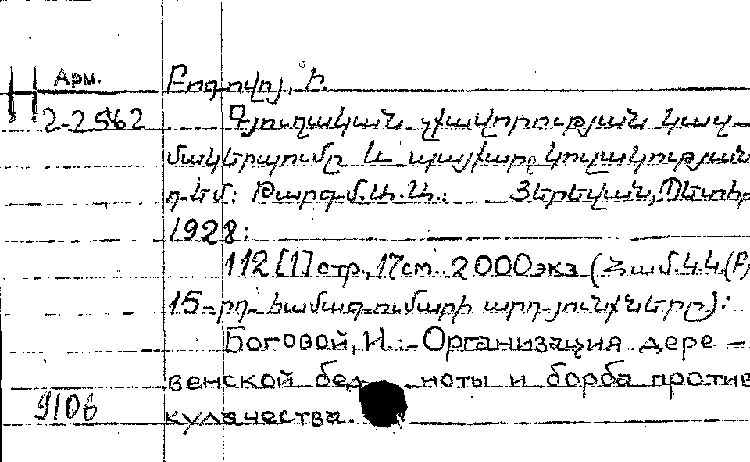 Арм.
Բոգովոյ, Ի.
2-2562
Գյուղական չքավորության կազ-
մակերպումը և պայքարը կուլակության
դեմ: Թարգմ. Ա. Ա. Յերեվան, Պետհր
1928:
112 [1] стр., 17 см. 2000 экз (Համ. Կ. Կ. (Բ)
15-րդ համագումարի արդյունքները):
Боговой, И. - Организация дере-
венской бед ноты и борба против
9106
кулачества.